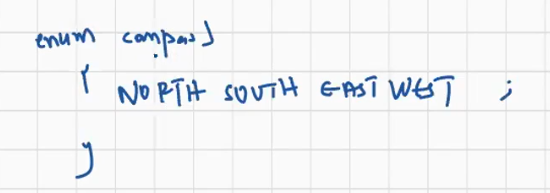 enum compass
{ NORTH SOUTH EAST WEST ;
}